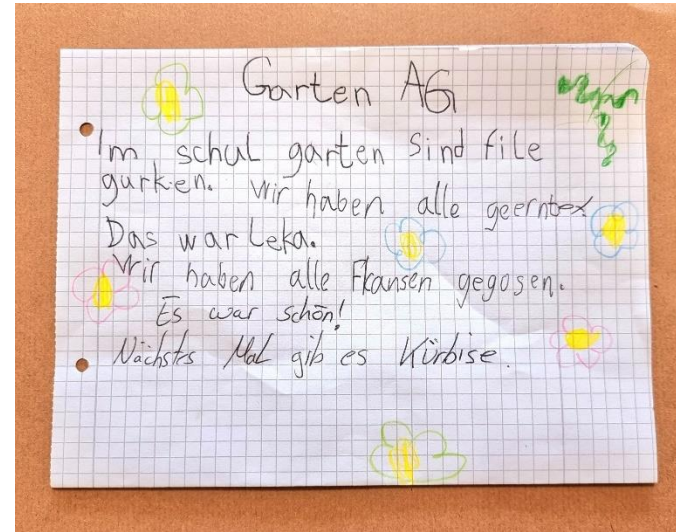 Garten AG
Im schul garten Sind file
gurken. Wir haben alle geerntet
Das war Leka.
Wir haben alle Fkansen gegosen.
Es war schön!
Nächstes Mal gib es Kürbise.